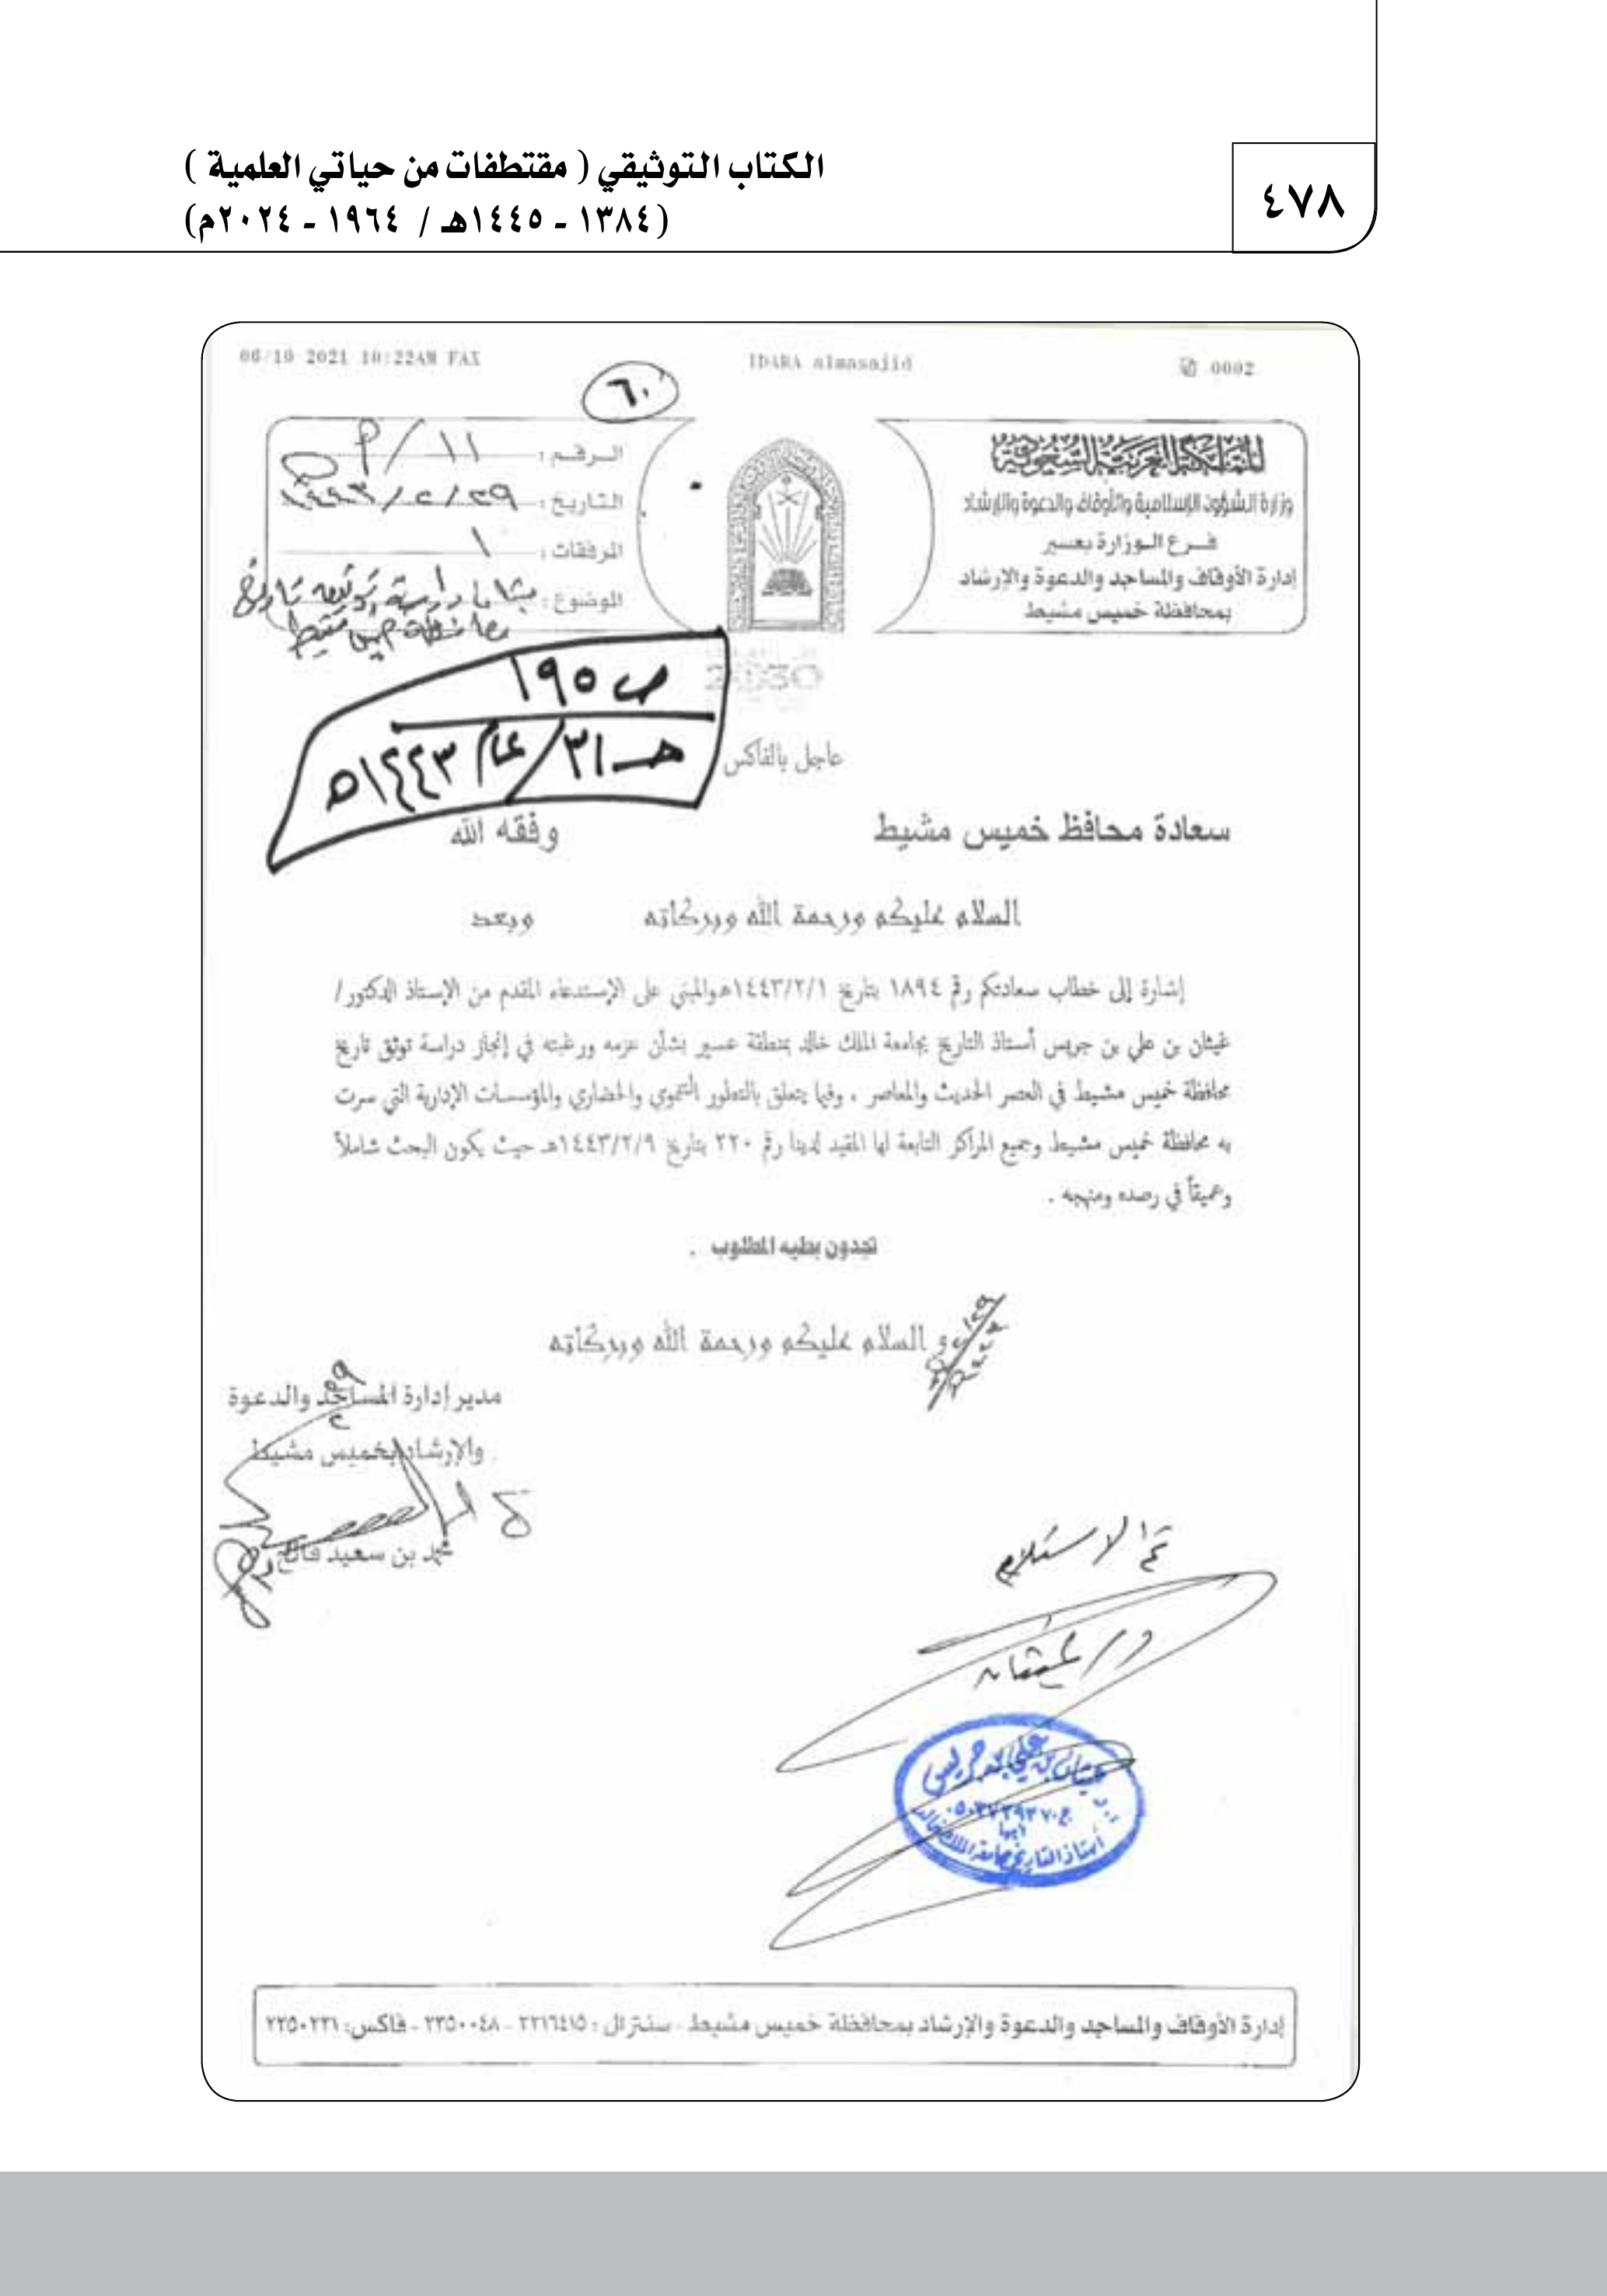 الكتاب التوثيقي ( مقتطفات من حياتي العلمية )
(١٣٨٤ - ١٤٤٥هـ / ١٩٦٤ - ٢٠٢٤م)
٤٧٨
06/10 2021 10:22AM FAX IDARA almasajid 0002
٦٠
المملكة العربية السعودية
وزارة الشؤون الإسلامية والأوقاف والدعوة والإرشاد
فرع الوزارة بعسير
إدارة الأوقاف والمساجد والدعوة والإرشاد
بمحافظة خميس مشيط
الرقم : ١١/
التاريخ : ٢٩/٢/١٤٤٣
المرفقات : ١
الموضوع : بشأن دراسة توثيق تاريخ
محافظة خميس مشيط
2030
ص ١٩٥
هـ ٣١/ عام ١٤٤٣هـ
عاجل بالفاكس
سعادة محافظ خميس مشيط وفقه الله
السلام عليكم ورحمة الله وبركاته وبعد
إشارة إلى خطاب سعادتكم رقم ١٨٩٤ بتاريخ ١٤٤٣/٢/١هـ والمبني على الإستدعاء المقدم من الإستاذ الدكتور/
غيثان بن علي بن جريس أستاذ التاريخ بجامعة الملك خالد بمنطقة عسير بشأن عزمه ورغبته في إنجاز دراسة توثق تاريخ
محافظة خميس مشيط في العصر الحديث والمعاصر ، وفيما يتعلق بالتطور التنموي والحضاري والمؤسسات الإدارية التي سرت
به محافظة خميس مشيط وجميع المراكز التابعة لها المقيد لدينا رقم ٢٢٠ بتاريخ ١٤٤٣/٢/٩هـ حيث يكون البحث شاملاً
وعميقاً في رصده ومنهجه .
تجدون بطيه المطلوب .
و السلام عليكم ورحمة الله وبركاته
مدير إدارة المساجد والدعوة
والإرشاد بخميس مشيط
محمد بن سعيد
تم الاستلام
د/ غيثان
غيثان بن علي بن جريس
أبها
أستاذ التاريخ جامعة الملك خالد
إدارة الأوقاف والمساجد والدعوة والإرشاد بمحافظة خميس مشيط - سنترال : ٢٢١٦٤١٥ - ٢٢٥٠٠٤٨ - فاكس: ٢٢٥٠٢٣١